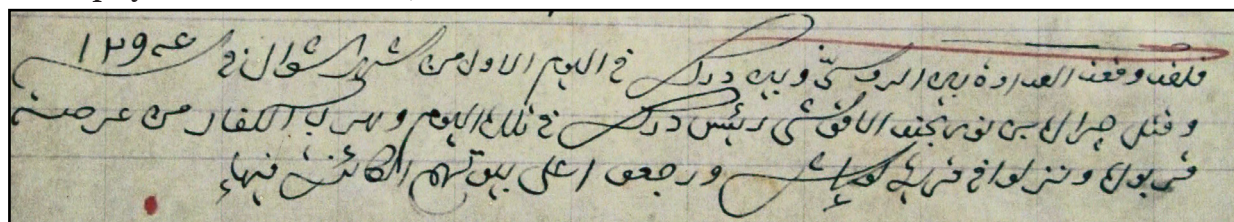 فلقد وقعت العداوة بين الروسيّ وبين درك في اليوم الاول من شهر الشوال في سنة ١٢٩٤
وقتل جرال من الاقوشي رئيس درك في تلك اليوم وهرب الكفار من عرصة
ونزلوا في قرية لوباش ورجعوا على بيوتهم الكائنة فيها